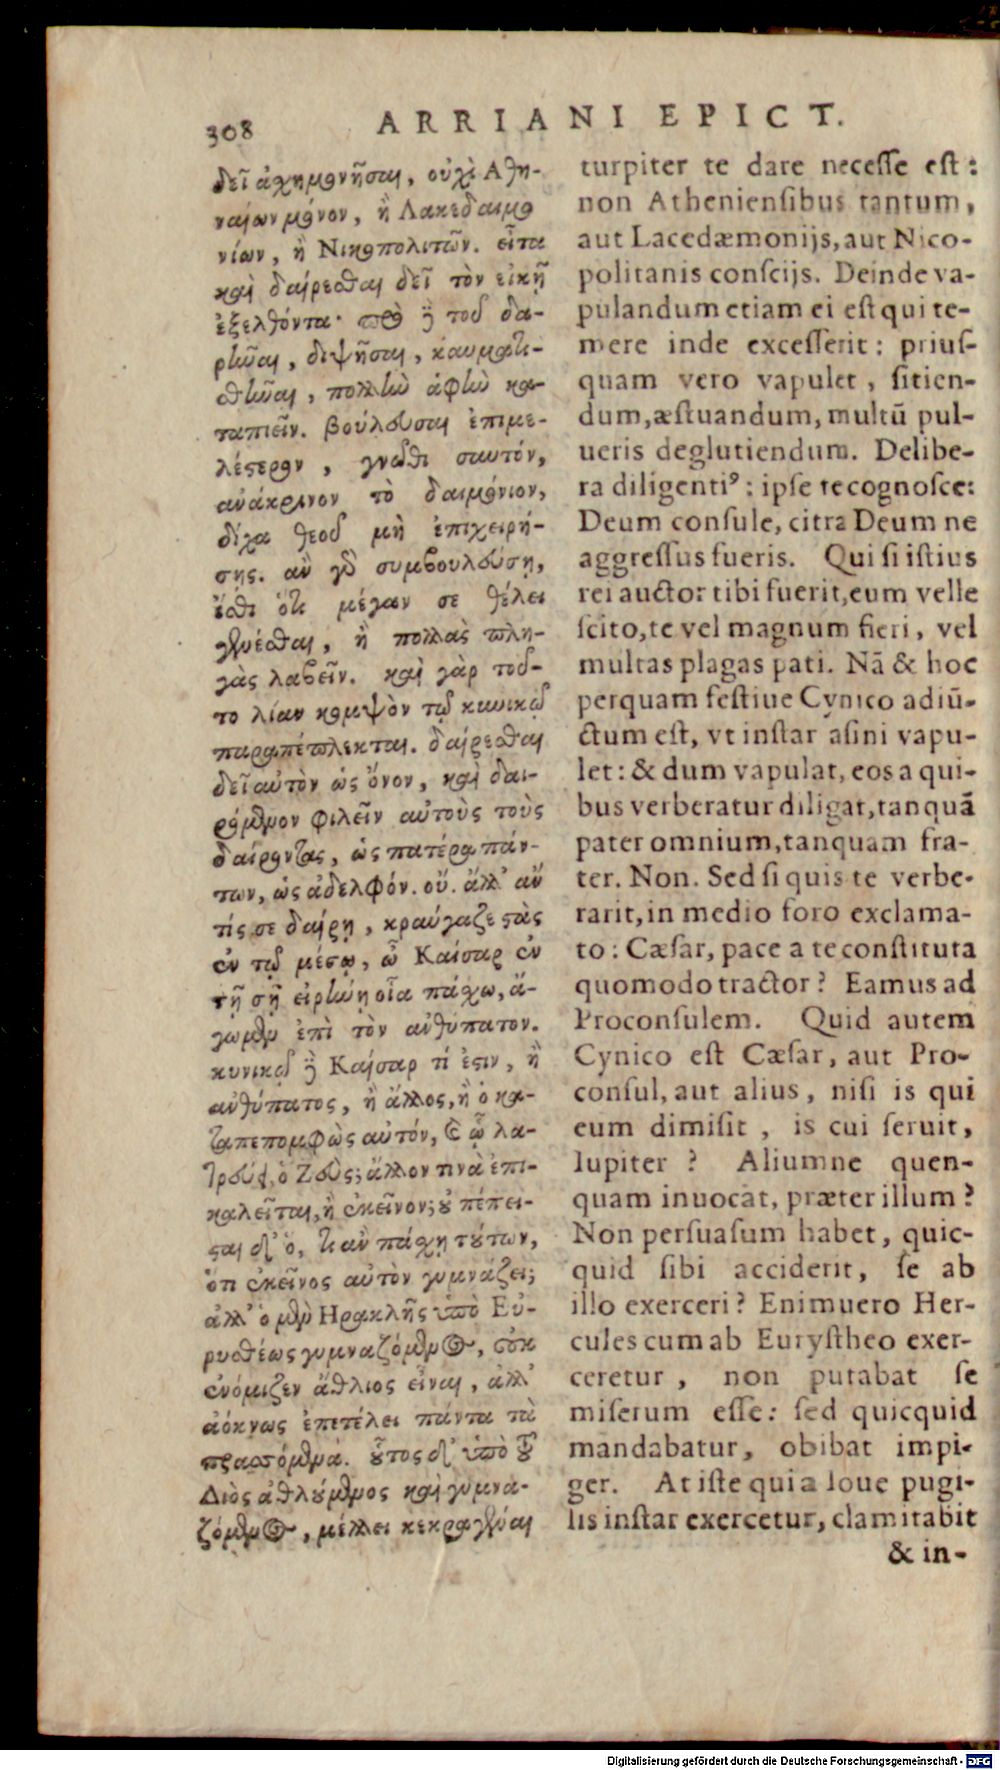 308 ARRIANI EPICT.
δεῖ ἀχημονῆσαι, οὐχὶ Ἀθη-
ναίων μόνον, ἢ Λακεδαιμο
νίων, ἢ Νικοπολιτῶν. εἶτα
καὶ δαίρεσθαι δεῖ τὸν εἰκῆ
ἐξελθόντα· πρὸ ἢ τοῦ δα-
ρῆναι, διψῆσαι, καυματι-
σθῆναι, πολλὴν ἁφὴν κα-
ταπιεῖν. βούλευσαι ἐπιμε-
λέστερον, γνῶθι σαυτόν,
ἀνάκρινον τὸ δαιμόνιον,
δίχα θεοῦ μὴ ἐπιχειρή-
σης. ἂν γὸ συμβουλεύσῃ,
ἴσθι ὅτι μέγαν σε θέλει
γενέσθαι, ἢ πολλὰς πλη-
γὰς λαβεῖν. καὶ γὰρ τοῦ-
το λίαν κομψὸν τῷ κυνικῷ
παραπέπλεκται. δαίρεσθαι
δεῖ αὐτὸν ὡς ὄνον, καὶ δαι-
ρόμενον φιλεῖν αὐτοὺς τοὺς
δαίροντας, ὡς πατέρα πάν-
των, ὡς ἀδελφόν. οὔ. ἀλλ' ἄν
τίς σε δαίρῃ, κραύγαζε στὰς
ἐν τῷ μέσῳ, ὦ Καίσαρ ἐν
τῇ σῇ εἰρήνῃ οἷα πάχω, ἄ-
γωμεν ἐπὶ τὸν ἀνθύπατον.
κυνικῷ ἢ Καίσαρ τί ἐστιν, ἢ
ἀνθύπατος, ἢ ἄλλος, ἢ ὁ κα-
ταπεπομφὼς αὐτόν, καὶ ᾧ λα-
τρεύει, ὁ Ζεύς; ἄλλον τινὰ ἐπι-
καλεῖται, ἢ ἐκεῖνον; οὐ πέπει-
σαι δ' ὅ, τι ἂν πάχῃ τούτων,
ὅτι ἐκεῖνος αὐτὸν γυμνάζει;
ἀλλ' ὁ μὲν Ἡρακλῆς ὑπὸ Εὐ-
ρυσθέως γυμναζόμενος, οὐκ
ἐνόμιζεν ἄθλιος εἶναι, ἀλλ'
ἀόκνως ἐπετέλει πάντα τὰ
προσταττόμενα. οὗτος δ' ὑπὸ τοῦ
Διὸς ἀθλούμενος καὶ γυμνα-
ζόμενος, μέλλει κεκραγέναι
turpiter te dare necesse est:
non Atheniensibus tantum,
aut Lacedæmonijs, aut Nico-
politanis conscijs. Deinde va-
pulandum etiam ei est qui te-
mere inde excesserit: prius-
quam vero vapulet, sitien-
dum, æstuandum, multū pul-
ueris deglutiendum. Delibe-
ra diligentiꝰ: ipse te cognosce:
Deum consule, citra Deum ne
aggressus fueris. Qui si istius
rei auctor tibi fuerit, eum velle
scito, te vel magnum fieri, vel
multas plagas pati. Nā & hoc
perquam festiue Cynico adiū-
ctum est, vt instar asini vapu-
let: & dum vapulat, eos a qui-
bus verberatur diligat, tanquā
pater omnium, tanquam fra-
ter. Non. Sed si quis te verbe-
rarit, in medio foro exclama-
to: Cæsar, pace a te constituta
quomodo tractor? Eamus ad
Proconsulem. Quid autem
Cynico est Cæsar, aut Pro-
consul, aut alius, nisi is qui
eum dimisit, is cui seruit,
Iupiter? Aliumne quen-
quam inuocat, præter illum?
Non persuasum habet, quic-
quid sibi acciderit, se ab
illo exerceri? Enimuero Her-
cules cum ab Eurystheo exer-
ceretur, non putabat se
miserum esse: sed quicquid
mandabatur, obibat impi-
ger. At iste qui a Ioue pugi-
lis instar exercetur, clamitabit
& in-
Digitalisierung gefördert durch die Deutsche Forschungsgemeinschaft - DFG